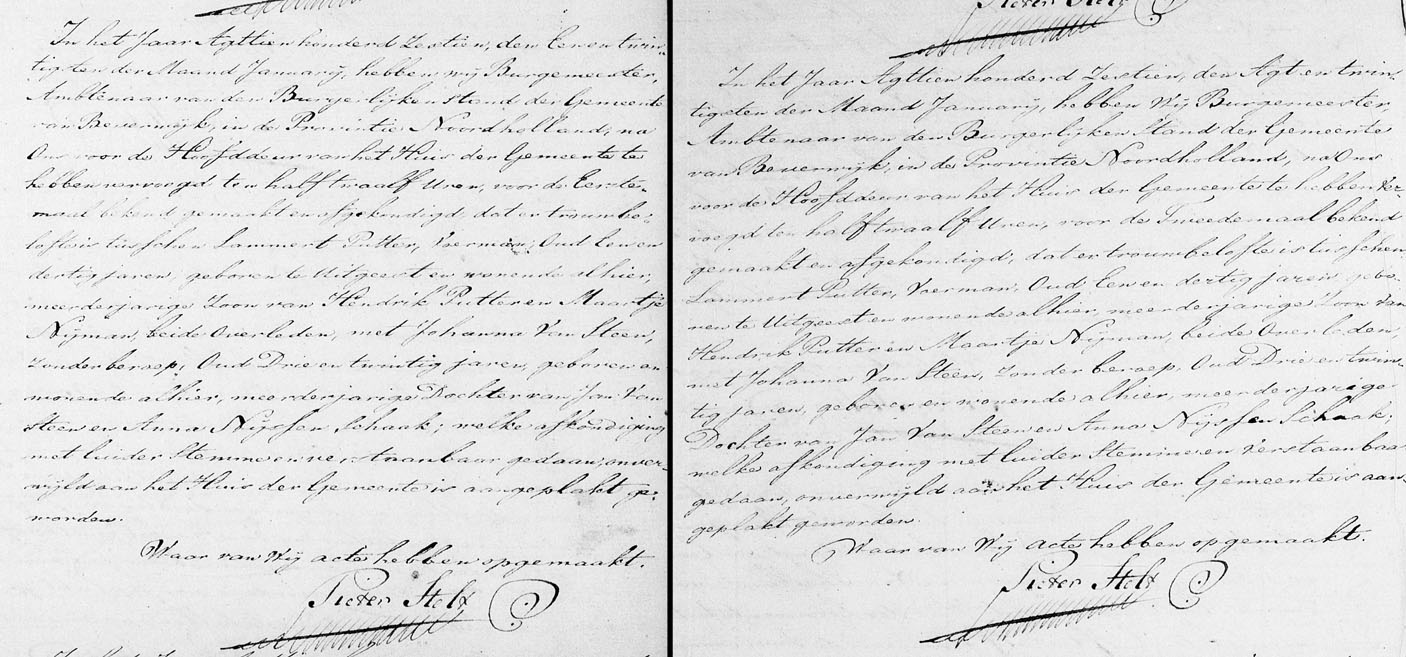 In het Jaar Agttien honderd Zestien, den Een en twin-
tigsten der Maand Januarij, hebben wij Burgemeester,
Ambtenaar van den Burgerlijken Stand der Gemeente
van Beverwijk, in de Provintie Noordholland, na
Ons voor de Hoofddeur van het Huis der Gemeente te
hebben vervoegd ten half twaalf Uren, voor de Eerste-
maal bekend gemaakt en afgekondigd, dat er trouwbe-
lofte is tusschen Lammert Putter, Voerman, Oud Een en
dertig jaren, geboren te Uitgeest en wonende alhier,
meerderjarige Zoon van Hendrik Putter en Maartje
Nijman, beide Overleden, met Johanna Van Steen,
zonder beroep, Oud Drie en twintig jaren, geboren en
wonende alhier, meerderjarige Dochter van Jan Van
Steen en Anna Nijssen Schaak; welke afkondiging
met luider Stemme en verstaanbaar gedaan, onver-
wijld aan het Huis der Gemeente is aangeplakt ge-
worden.
Waar van Wij acte hebben opgemaakt.
Pieter Stolt
Pieter Stolt
In het Jaar Agttien honderd Zestien, den Agt en twin-
tigsten der Maand Januarij, hebben Wij Burgemeester
Ambtenaar van den Burgerlijken Stand der Gemeente
van Beverwijk, in de Provintie Noordholland, na Ons
voor de Hoofddeur van het Huis der Gemeente te hebben ver-
voegd ten half twaalf Uren, voor de Tweedemaal bekend
gemaakt en afgekondigd, dat er trouwbelofte is tusschen
Lammert Putter, Voerman, Oud Een en dertig jaren, gebo-
ren te Uitgeest en wonende alhier, meerderjarige Zoon van
Hendrik Putter en Maartje Nijman, beide Overleden,
met Johanna Van Steen, Zonder beroep, Oud Drie en twin-
tig jaren, geboren en wonende alhier, meerderjarige
Dochter van Jan Van Steen en Anna Nijssen Schaak;
welke afkondiging met luider Stemme en Verstaanbaar
gedaan, onverwijld aan het Huis der Gemeente is aan-
geplakt geworden.
Waar van Wij acte hebben opgemaakt.
Pieter Stolt